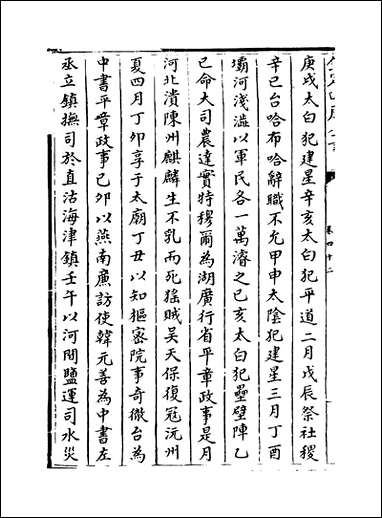 卷四十二
庚戌太白犯建星辛亥太白犯平道二月戊辰祭社稷
辛巳台哈布哈辭職不允甲申太陰犯建星三月丁酉
壩河淺澁以軍民各一萬濬之己亥太白犯壘壁陣乙
巳命大司農達實特穆爾為湖廣行省平章政事是月
河北潰陳州麒麟生不乳而死猺賊吴天保復冦沅州
夏四月丁卯享于太廟丁丑以知樞密院事奇徹台為
中書平章政事己卯以燕南亷訪使韓元善為中書左
丞立鎮撫司於直沽海津鎮壬午以河間鹽運司水災